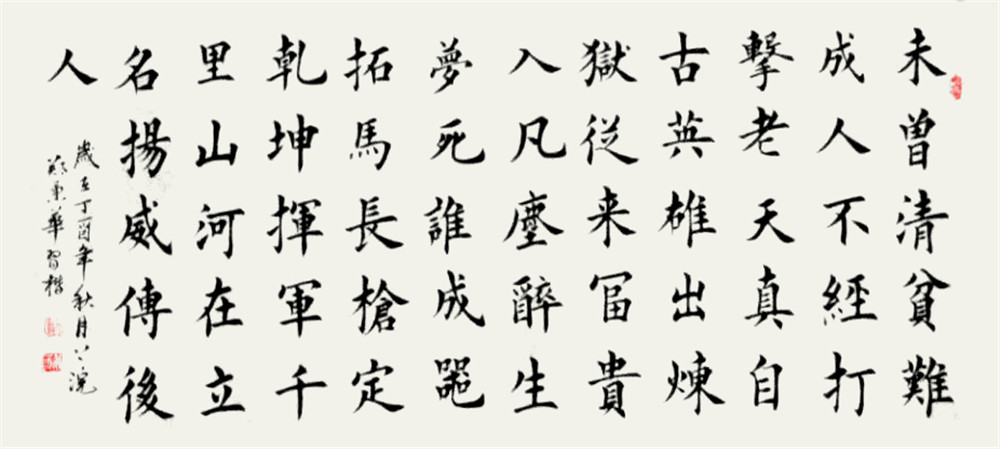 未曾清貧難
成人不經打
擊老天真自
古英雄出煉
獄從来冨貴
入凡塵醉生
夢死誰成噐
拓馬長槍定
乾坤揮軍千
里山河在立
名揚威傳後
人
歲在丁酉年秋月上浣
華習楷